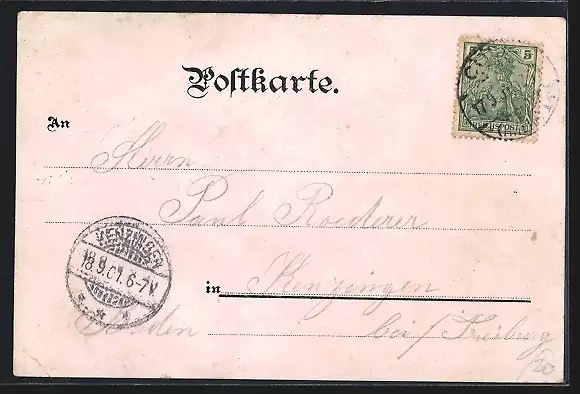 Postkarte.
5
REICHSPOST
17.9.
An
Herrn
Paul Roederer
in Kenzingen
KENZINGEN
18.9.01.6-7V
Baden bei / Freiburg
20